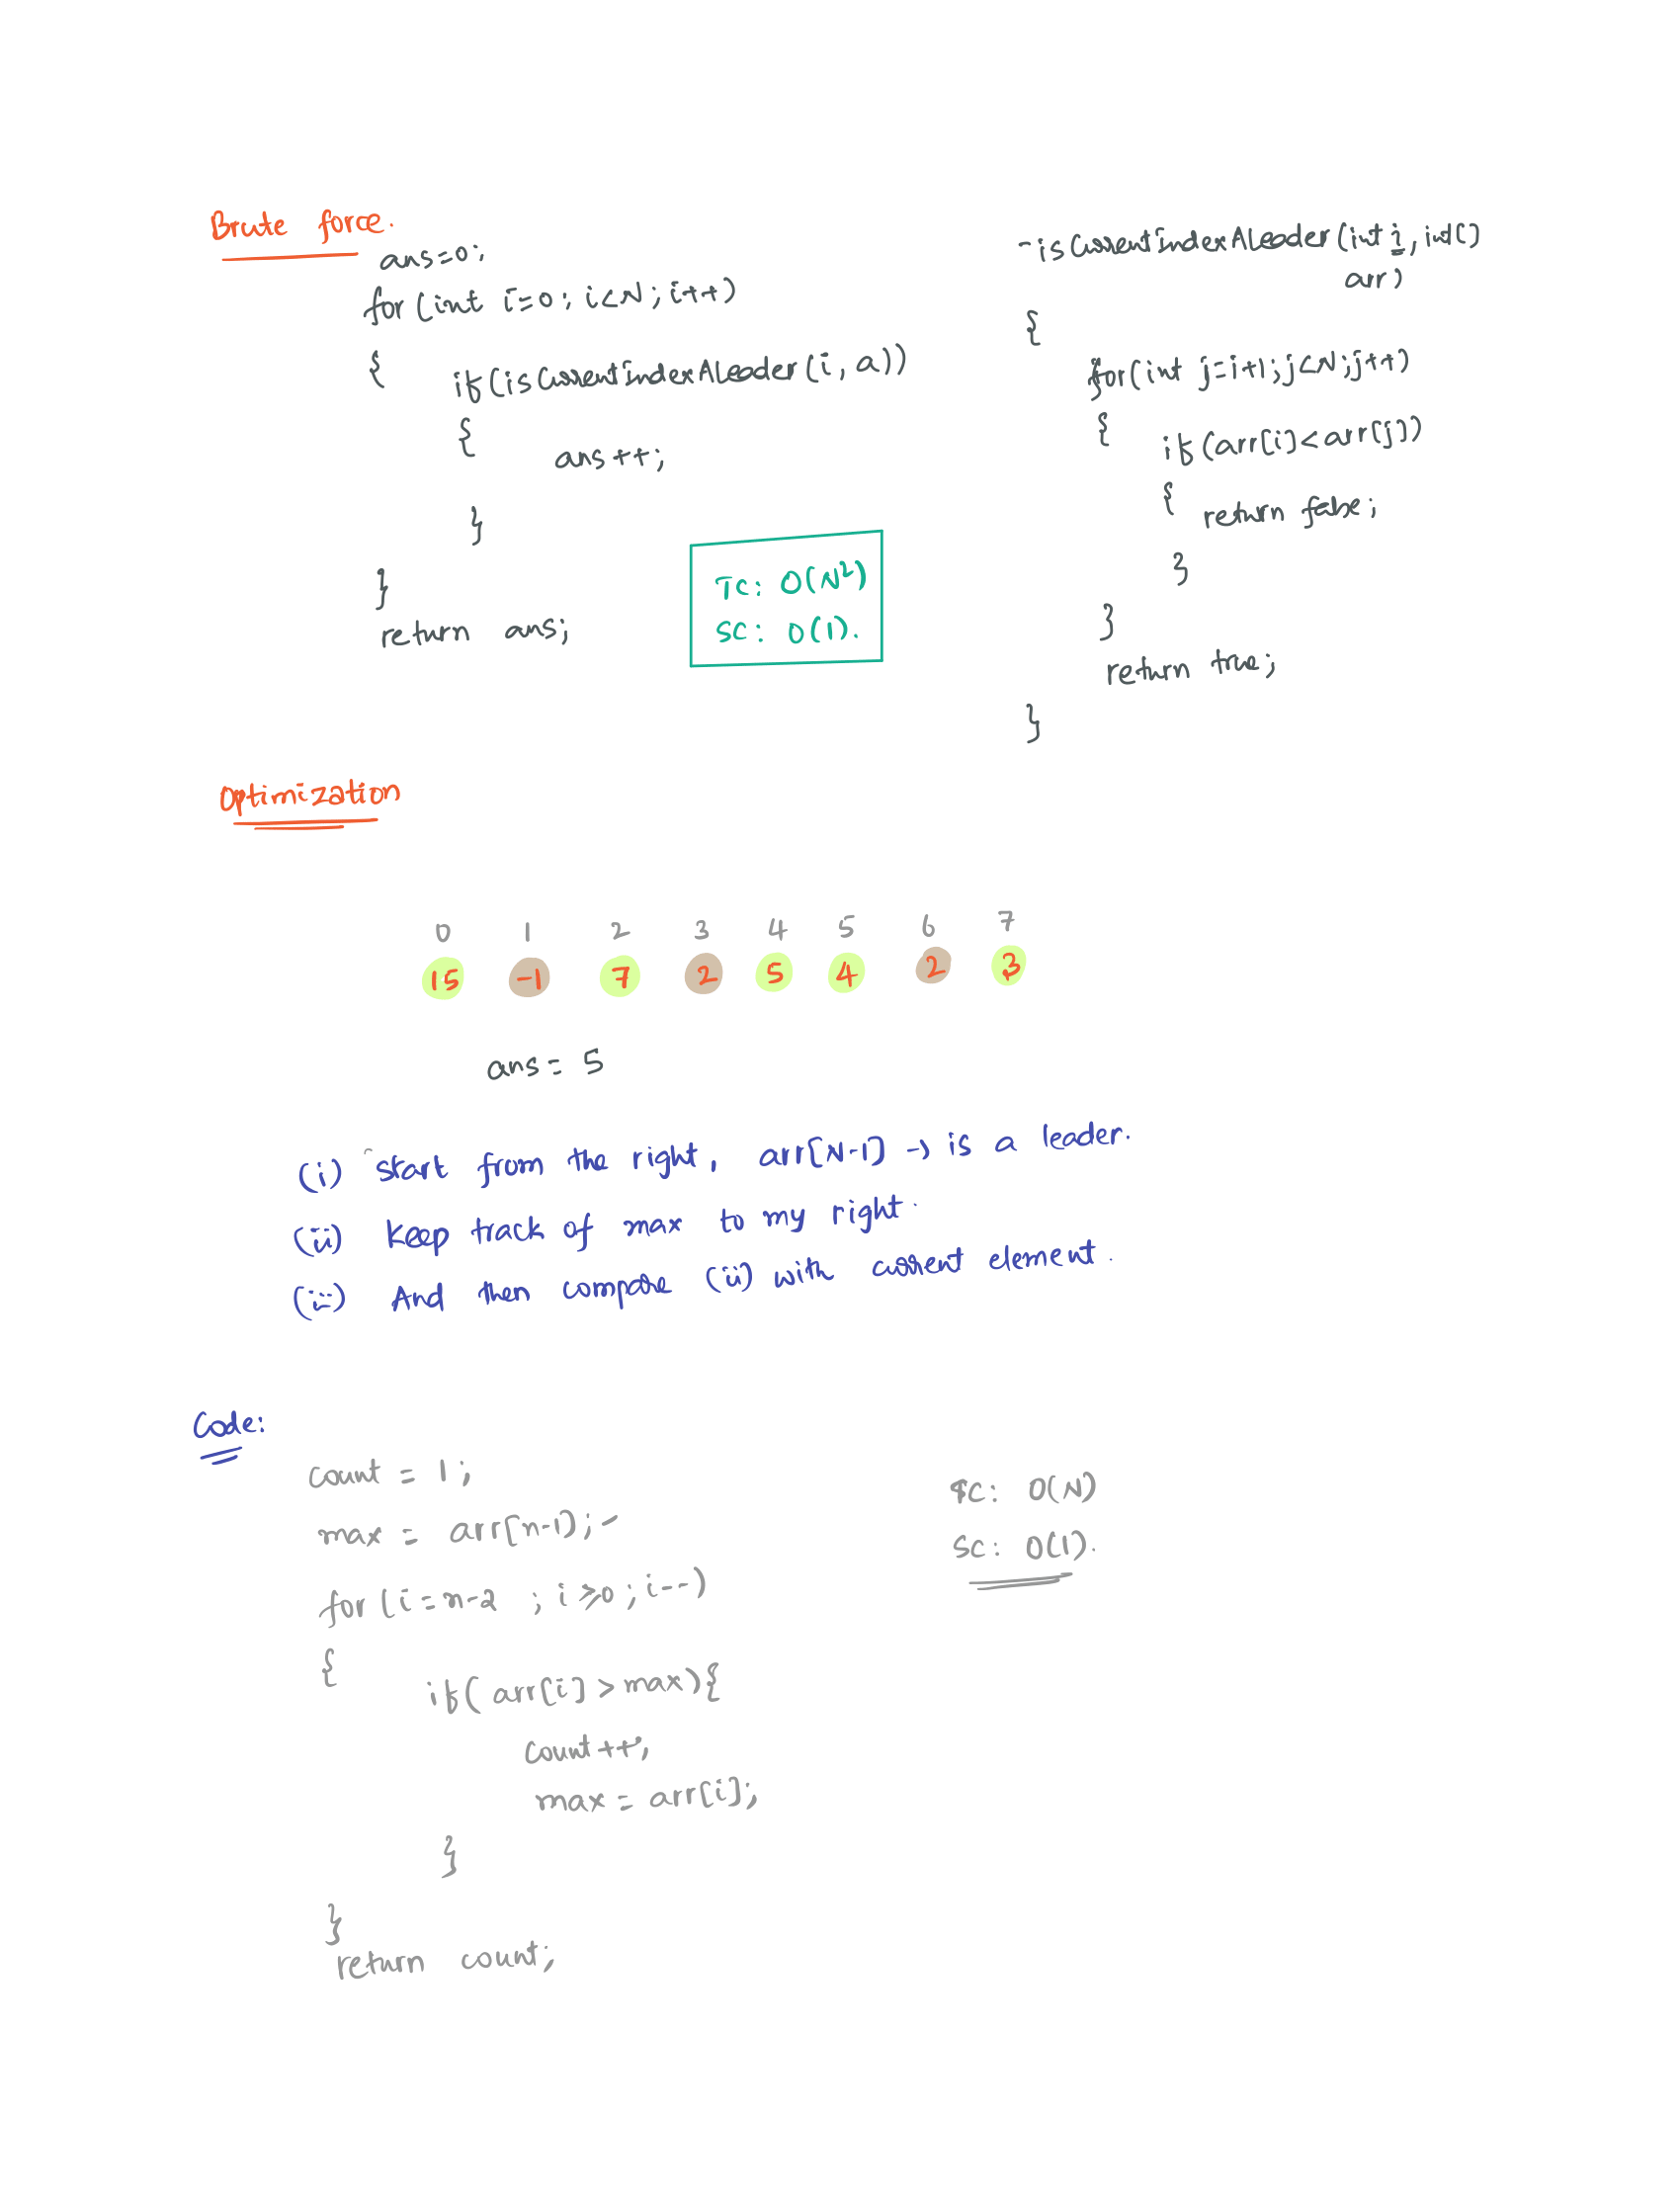 Brute force.
ans=0;
for (int i=0; i<N; i++)
{
if (isCurrentIndexALeader(i, a))
{
ans++;
}
}
return ans;
TC: O(N²)
SC: O(1).
- isCurrentIndexALeader(int i, int[]
arr)
{
for(int j=i+1; j<N; j++)
{
if (arr[i]<arr[j])
{
return false;
}
}
return true;
}
Optimization
0 1 2 3 4 5 6 7
15 -1 7 2 5 4 2 3
ans = 5
(i) Start from the right, arr[N-1] -> is a leader.
(ii) Keep track of max to my right.
(iii) And then compare (ii) with current element.
Code:
count = 1;
max = arr[n-1];
for (i=n-2 ; i≥0; i--)
{
if( arr[i] > max){
count++;
max = arr[i];
}
}
return count;
TC: O(N)
SC: O(1).